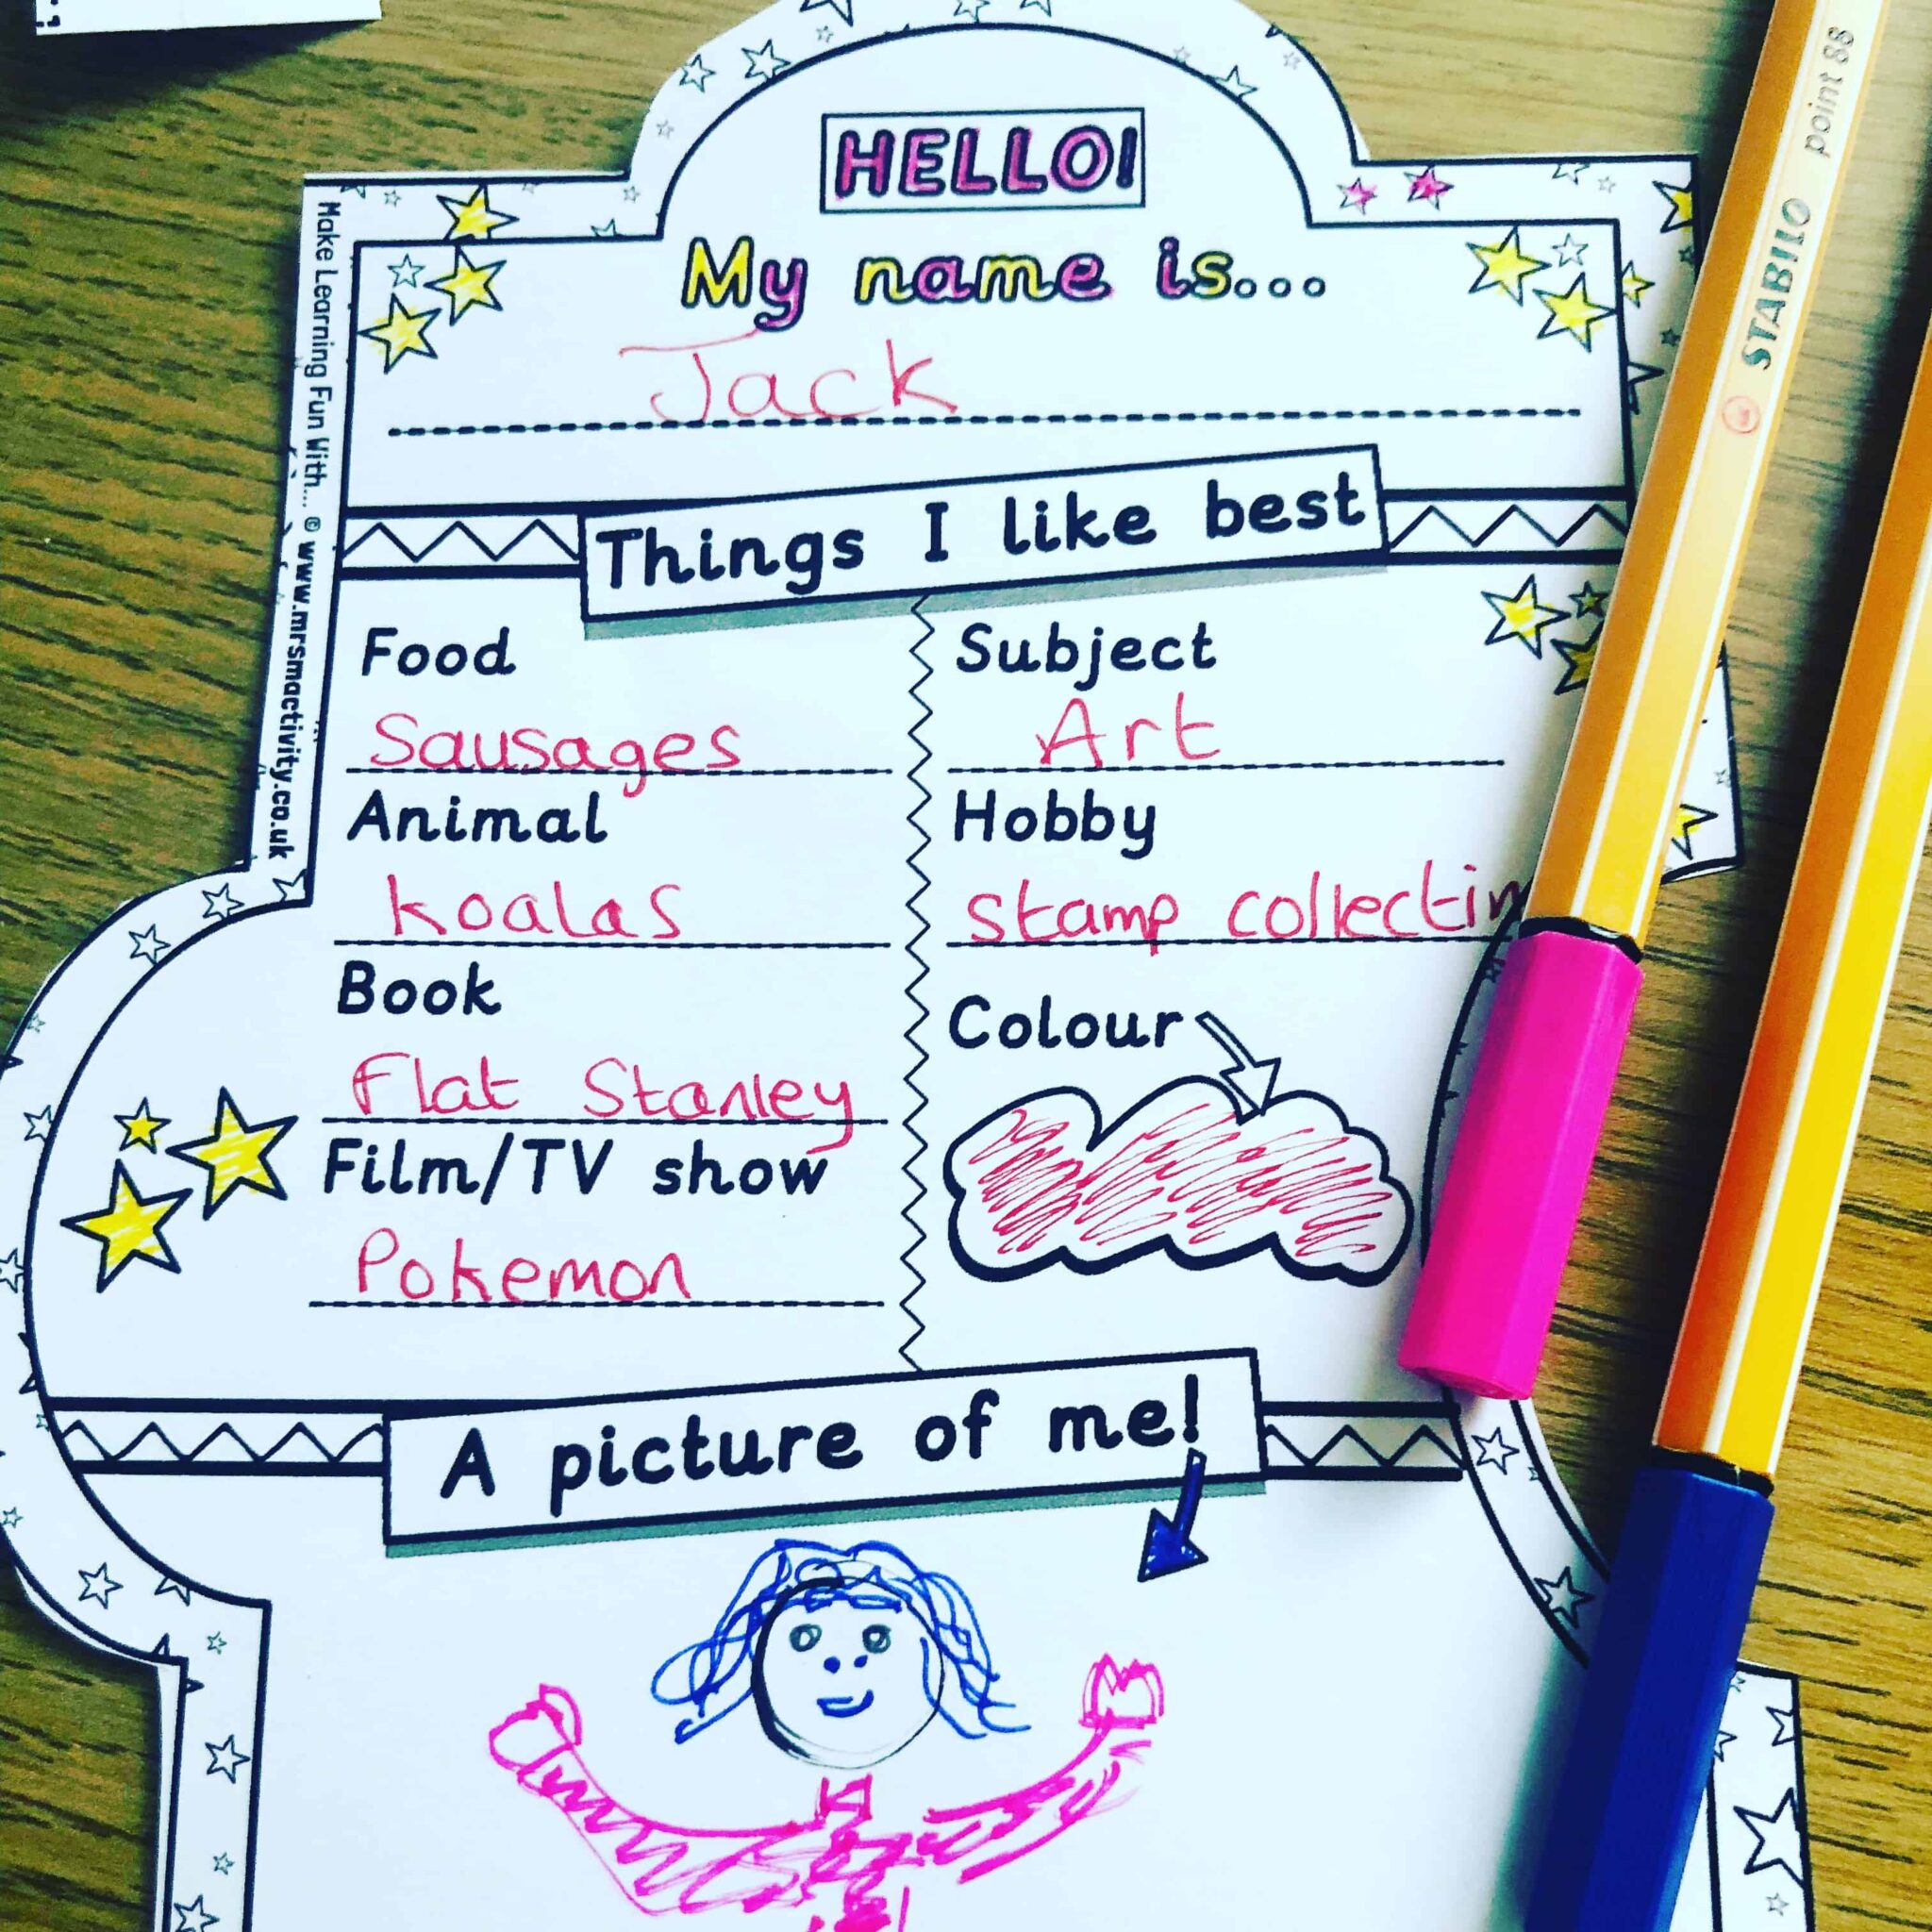 HELLO!
My name is...
Jack
Things I like best
Food
Sausages
Animal
Koalas
Book
Flat Stanley
Film/TV show
Pokemon
Subject
Art
Hobby
stamp collectin
Colour
A picture of me!
Make Learning Fun With... © www.mrsmactivity.co.uk
STABILO point 88